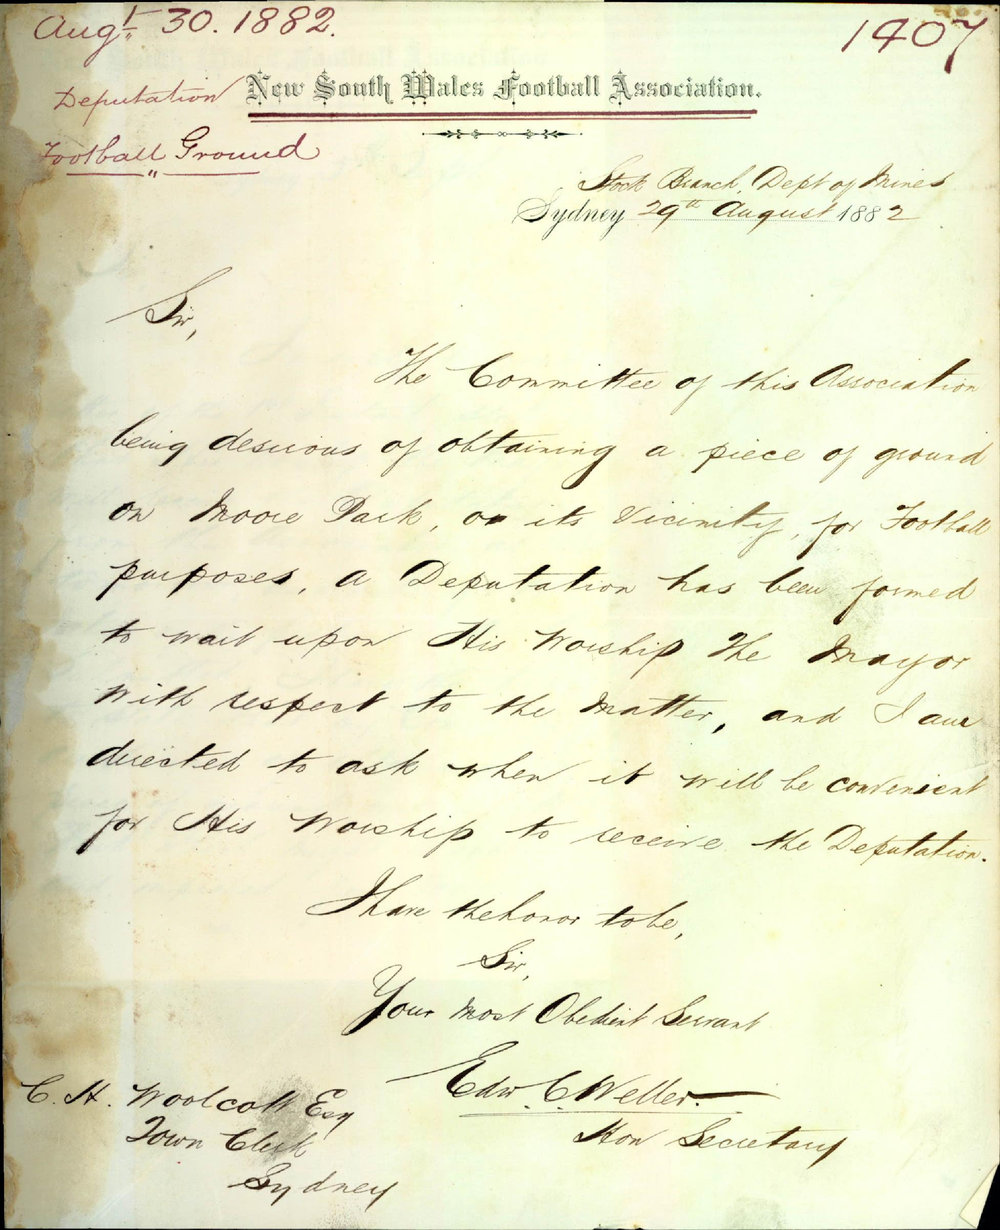 Augt 30. 1882.
1407
Deputation
Football Ground
New South Wales Football Association.
Stock Branch, Dept of Mines
Sydney 29th August 1882
Sir,
The Committee of this Association
being desirous of obtaining a piece of ground
on Moore Park, or its Vicinity, for Football
purposes, a Deputation has been formed
to wait upon His Worship The Mayor
with respect to the Matter, and I am
directed to ask when it will be convenient
for His Worship to receive the Deputation.
I have the honor to be,
Sir,
Your Most Obedient Servant
Edw. C. Weller.
Hon Secretary
C. H. Woolcott Esq
Town Clerk
Sydney